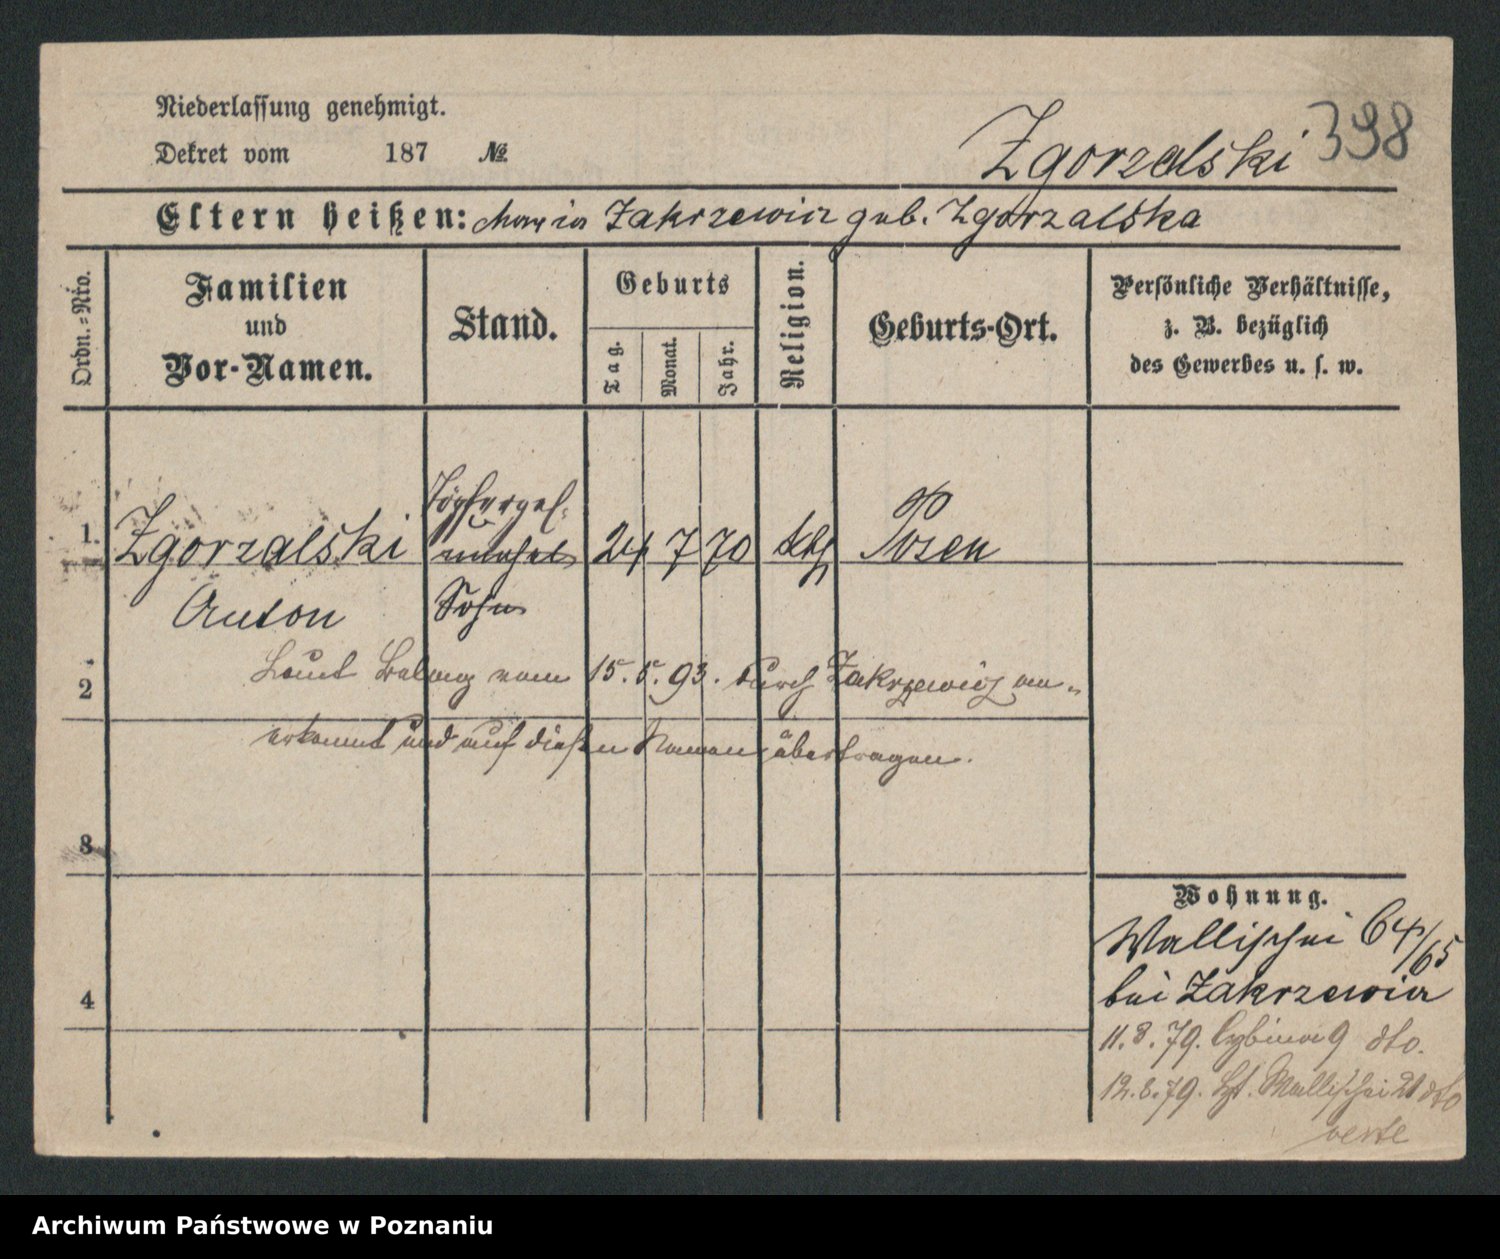 Niederlassung genehmigt.
Dekret vom 187 №
Zgorzalski 398
Eltern heißen: Maria Zakrzewicz geb. Zgorzalska
Ordn.=Nro.
Familien
und
Vor-Namen.
Stand.
Geburts
Tag.
Monat.
Jahr.
Religion.
Geburts-Ort.
Persönliche Verhältnisse,
z. B. bezüglich
des Gewerbes u. s. w.
Töpferges.
1. Zgorzalski 24 7 70 kth Posen
Anton Sohn
2 Laut vom 15.5.93. durch Zakrzewicz an=
erkannt und auf diesen Namen übertragen.
3
4
Wohnung.
Wallischei 64/65
bei Zakrzewicz
11.8.79. Cybina 9 dto.
12.8.79. Wallischei 21 dto
verte
Archiwum Państwowe w Poznaniu